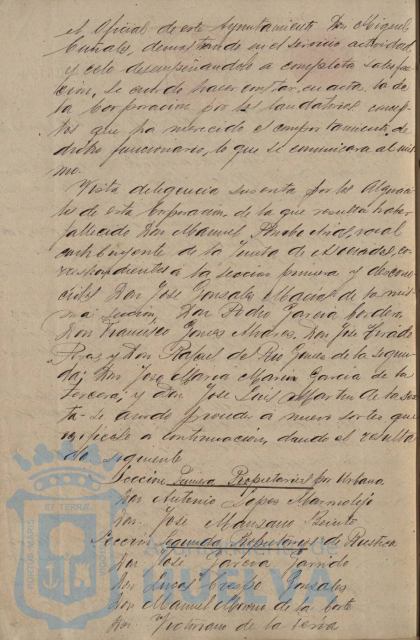 el Oficial de este Ayuntamiento Don Miguel
Cuñales, demostrando en el servicio actividad
y celo desempeñandolo a completa satisfac
cion, se acordó hacer constar en acta la de
la Corporacion por los laudatorios concep
tos que ha merecido el comportamiento de
dicho funcionario, lo que se comunicara al mis
mo.
Vista diligencia suscrita por los Alguaci
les de esta Corporacion, de la que resulta haber
fallecido Don Manuel vocal
contribuyente de la Junta de Asociados, co
rrespondientes a la seccion primera y descono
cidos Don Jose Gonzalez Macias de la mis
ma seccion, Don Pedro Garcia
Don Francisco Gomez Don Jose
y Don Rafael del Rio Gomez de la segun
da; Don Jose Maria Marin Garcia de la
tercera; y Don Jose Luis Martin de la
ta - se acordó proceder a nuevo sorteo que
verificole a continuacion, dando el resulta
do siguiente
Seccion Primera Propietarios por Urbana
Don Antonio Lopez Marmolejo
Don Jose Manzano
Seccion segunda Propietarios de Rustica
Don Jose Garcia Garrido
Don Lucas Crespo Gonzalez
Don Manuel Moreno de la Corte
Don Victoriano de la Cerda
Ayuntamiento de
HUELVA
PORTUS MARIS
ET TERRAE